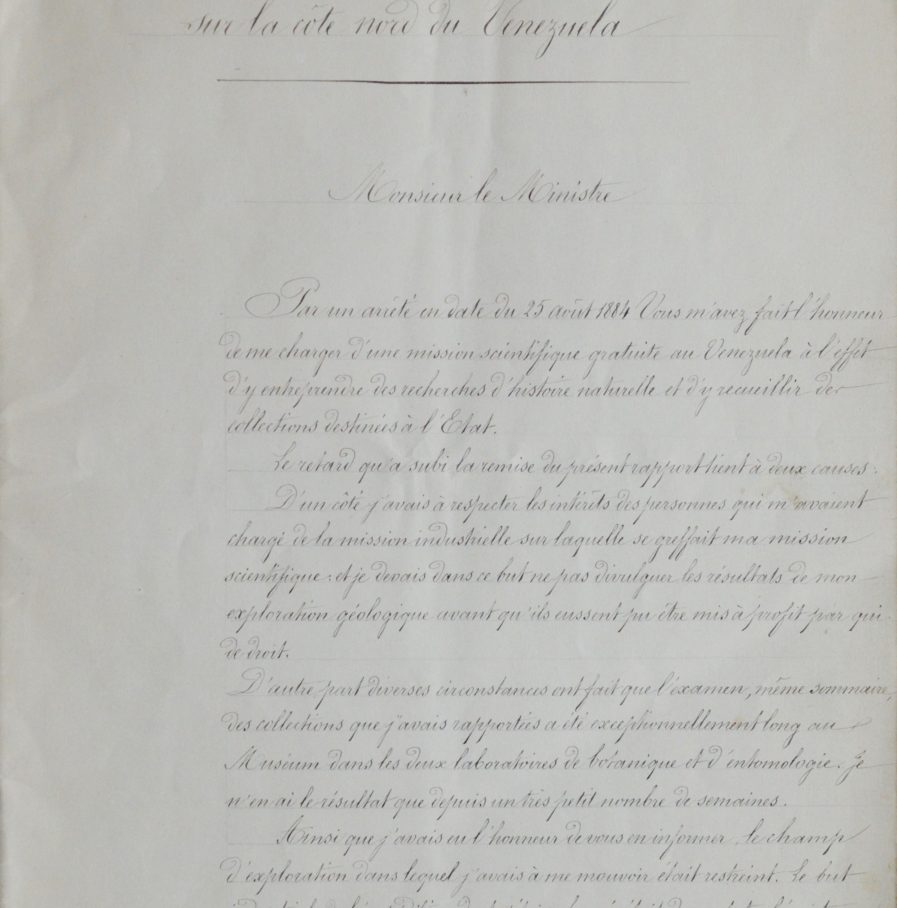 sur la côte nord du Venezuela
Monsieur le Ministre
Par un arrêté en date du 25 août 1884 Vous m'avez fait l'honneur
de me charger d'une mission scientifique gratuite au Venezuela à l'effet
d'y entreprendre des recherches d'histoire naturelle et d'y recueillir des
collections destinées à l'Etat.
Le retard qu'a subi la remise du présent rapport tient à deux causes :
D'un côté j'avais à respecter les intérêts des personnes qui m'avaient
chargé de la mission industrielle sur laquelle se greffait ma mission
scientifique : et je devais dans ce but ne pas divulguer les résultats de mon
exploration géologique avant qu'ils eussent pu être mis à profit par qui
de droit.
D'autre part diverses circonstances ont fait que l'examen, même sommaire,
des collections que j'avais rapportées a été exceptionnellement long au
Muséum dans les deux laboratoires de botanique et d'entomologie. Je
n'en ai le résultat que depuis un très petit nombre de semaines.
Ainsi que j'avais eu l'honneur de vous en informer, le champ
d'exploration dans lequel j'avais à me mouvoir était restreint. Le but